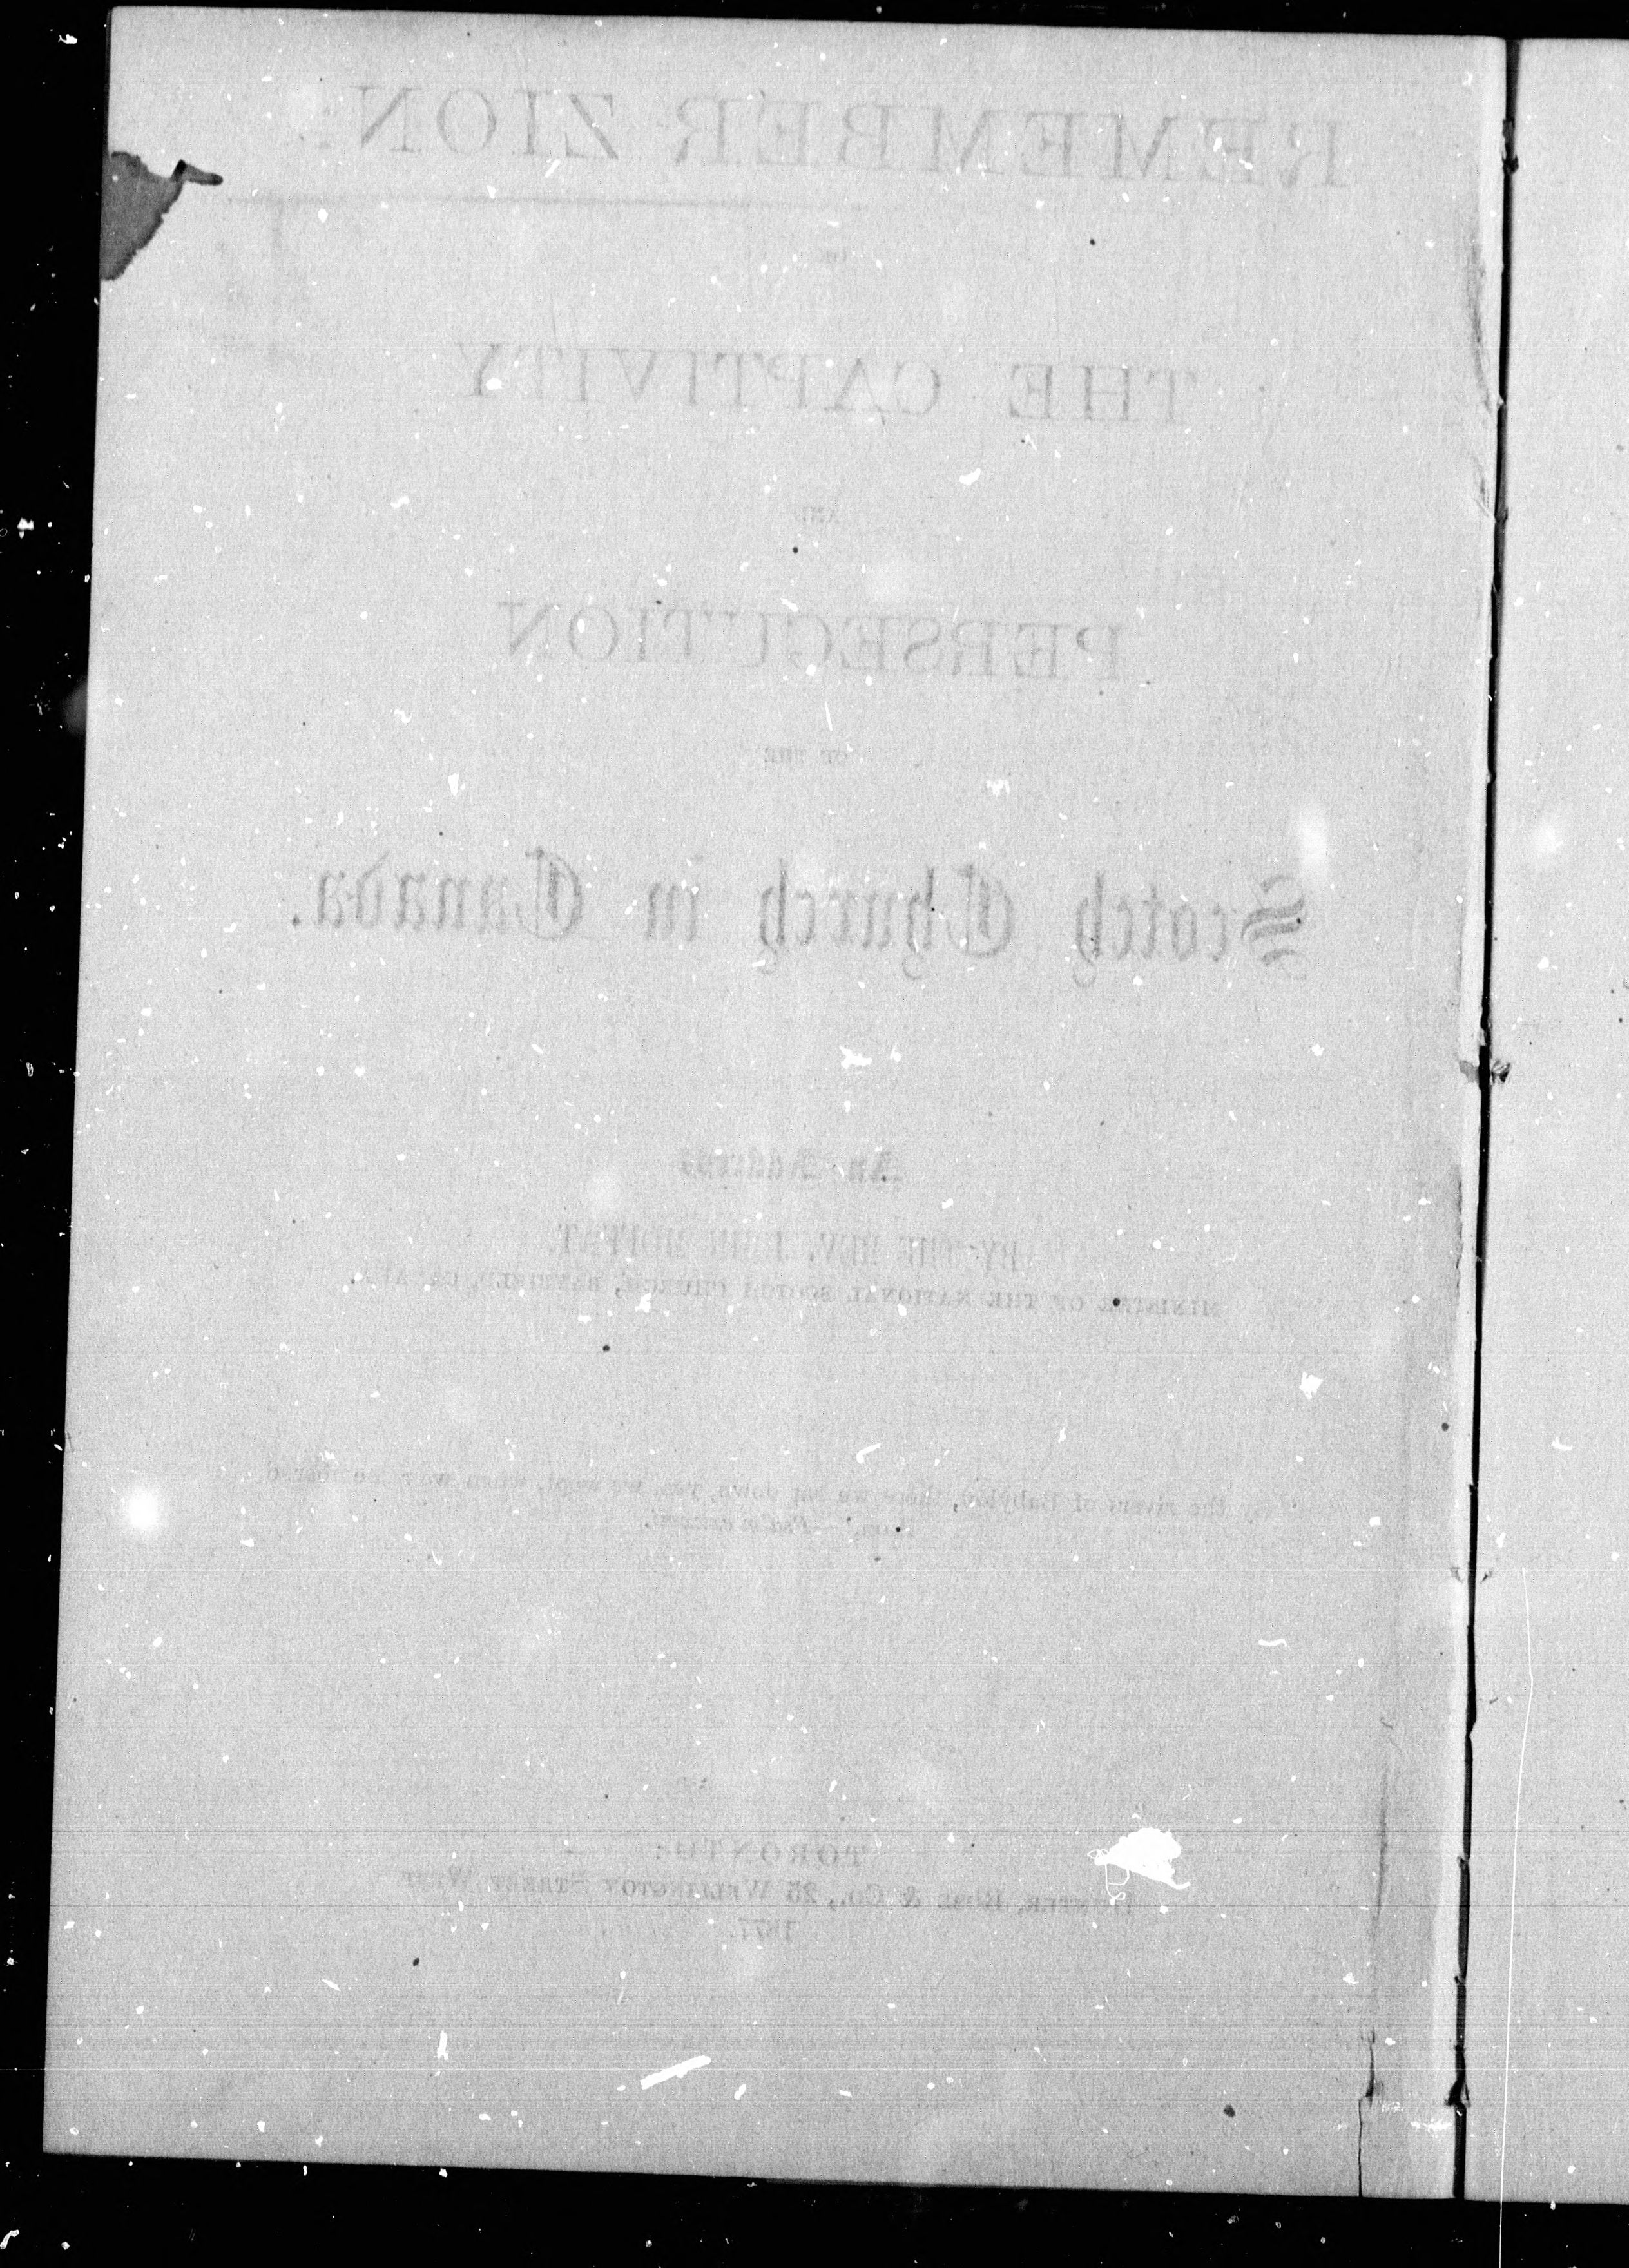 REMEMBER ZION
OR
THE CAPTIVITY
AND
PERSECUTION
OF THE
Scotch Church in Canada.
An Address
BY THE REV. JOHN MOFFAT,
MINISTER OF THE NATIONAL SCOTCH CHURCH, BAYFIELD, CANADA.
the rivers of Babylon, there we sat down, yea, we wept, when we remembered
Zion."—Psalm cxxxvii.
TORONTO:
HUNTER, ROSE & CO., 25 WELLINGTON STREET WEST
1877.